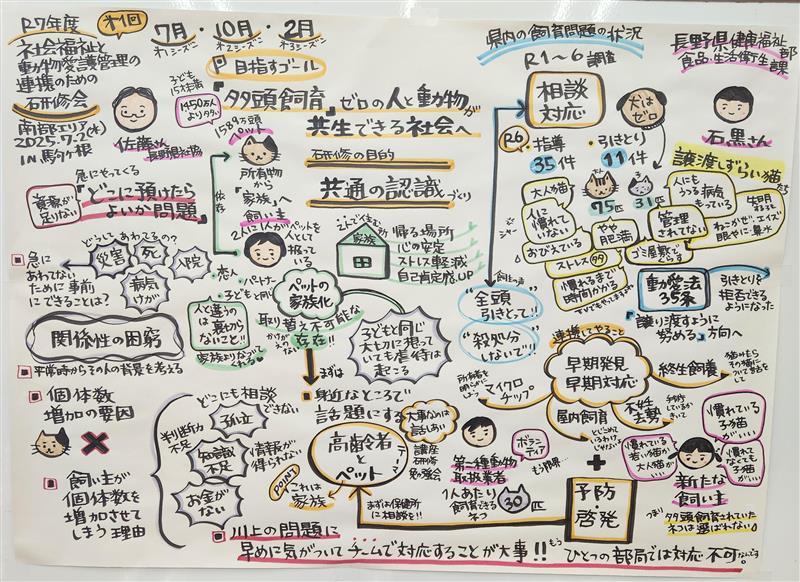 R7年度
第1回
社会福祉と
動物愛護管理の
連携のための
研修会
南部エリア
2025.7.2(水)
IN 駒ヶ根
7月・10月・2月
第1シーズン
第2シーズン
第3シーズン
目指すゴール
「多頭飼育」ゼロの人と動物が
共生できる社会へ
研修の目的
共通の認識づくり
佐藤さん
長野県社協
子ども
15才未満
1450万人
より多い
1589万頭
ペット
所有物
から
「家族」へ
依存
飼い主
2人に1人がペットを
人として
扱っている
急にやってくる
「どこに預けたら
よいか問題」
資源が
足りない
急に
あわてない
ために事前
にできることは?
どうしてあわてるの?
災害
死
入院
病気
けが
関係性の困窮
平常時からその人の背景を考える
・恋人
・パートナー
・子どもと同じ
人と違うの
は裏切ら
ないこと!!
家族よりなついて
くれる
ペットの
家族化
取り替え不可能な
かけがえのない
存在!!
家族
帰る場所
心の安定
ストレス軽減
自己肯定感UP
子どもと同じ
大切に想って
いても虐待は
起こる
まずは
身近なところで
話題にする
高齢者
と
ペット
大事なのは
話しあい
講座
研修
勉強会
POINT
これは
家族
まずは保健所
に相談を!!
個体数
増加の要因
飼い主が
個体数を
増加させて
しまう理由
どこにも相談
できない
孤立
判断力
不足
知識
不足
情報が
得られない
お金が
ない
川上の問題に
早めに気がついてチームで対応することが大事!!
もうひとつの部局では対応不可なんです。
県内の飼育問題の状況
R1~6 調査
長野県健康福祉部
食品・生活衛生課
石黒さん
相談
対応
犬は
ゼロ
R6
・指導
35件
・引きとり
11件
75匹
31匹
譲渡しずらい猫たち
大人猫
人に
慣れて
いない
おびえている
やや
肥満
ストレス
慣れるまで
時間かかる
人にも
うつる病気
もっている
管理され
てない
ゴミ屋敷で
ねこかぜ・エイズ
眼やに・鼻水
動愛法
35条
引きとりを
拒否できる
ようになった
「譲り渡すように
努める」方向へ
飼い主の声
“全頭
引きとって!!”
“殺処分
しないで!!”
連携してやること
早期発見
早期対応
終生飼養
不妊
去勢
屋内飼育
マイクロ
チップ
所有者を
明らかに
しよう
第一種動物
取扱業者
1人あたり
飼育できる
ネコ
30匹
ボラン
ティア
もう限界…
+
予防・
啓発
慣れている
若い猫か
大人猫がいい
慣れている
子猫
がいい
慣れて
なくても
子猫
がいい
新たな
飼い主
つまり
多頭飼育されていた
ネコは選ばれない